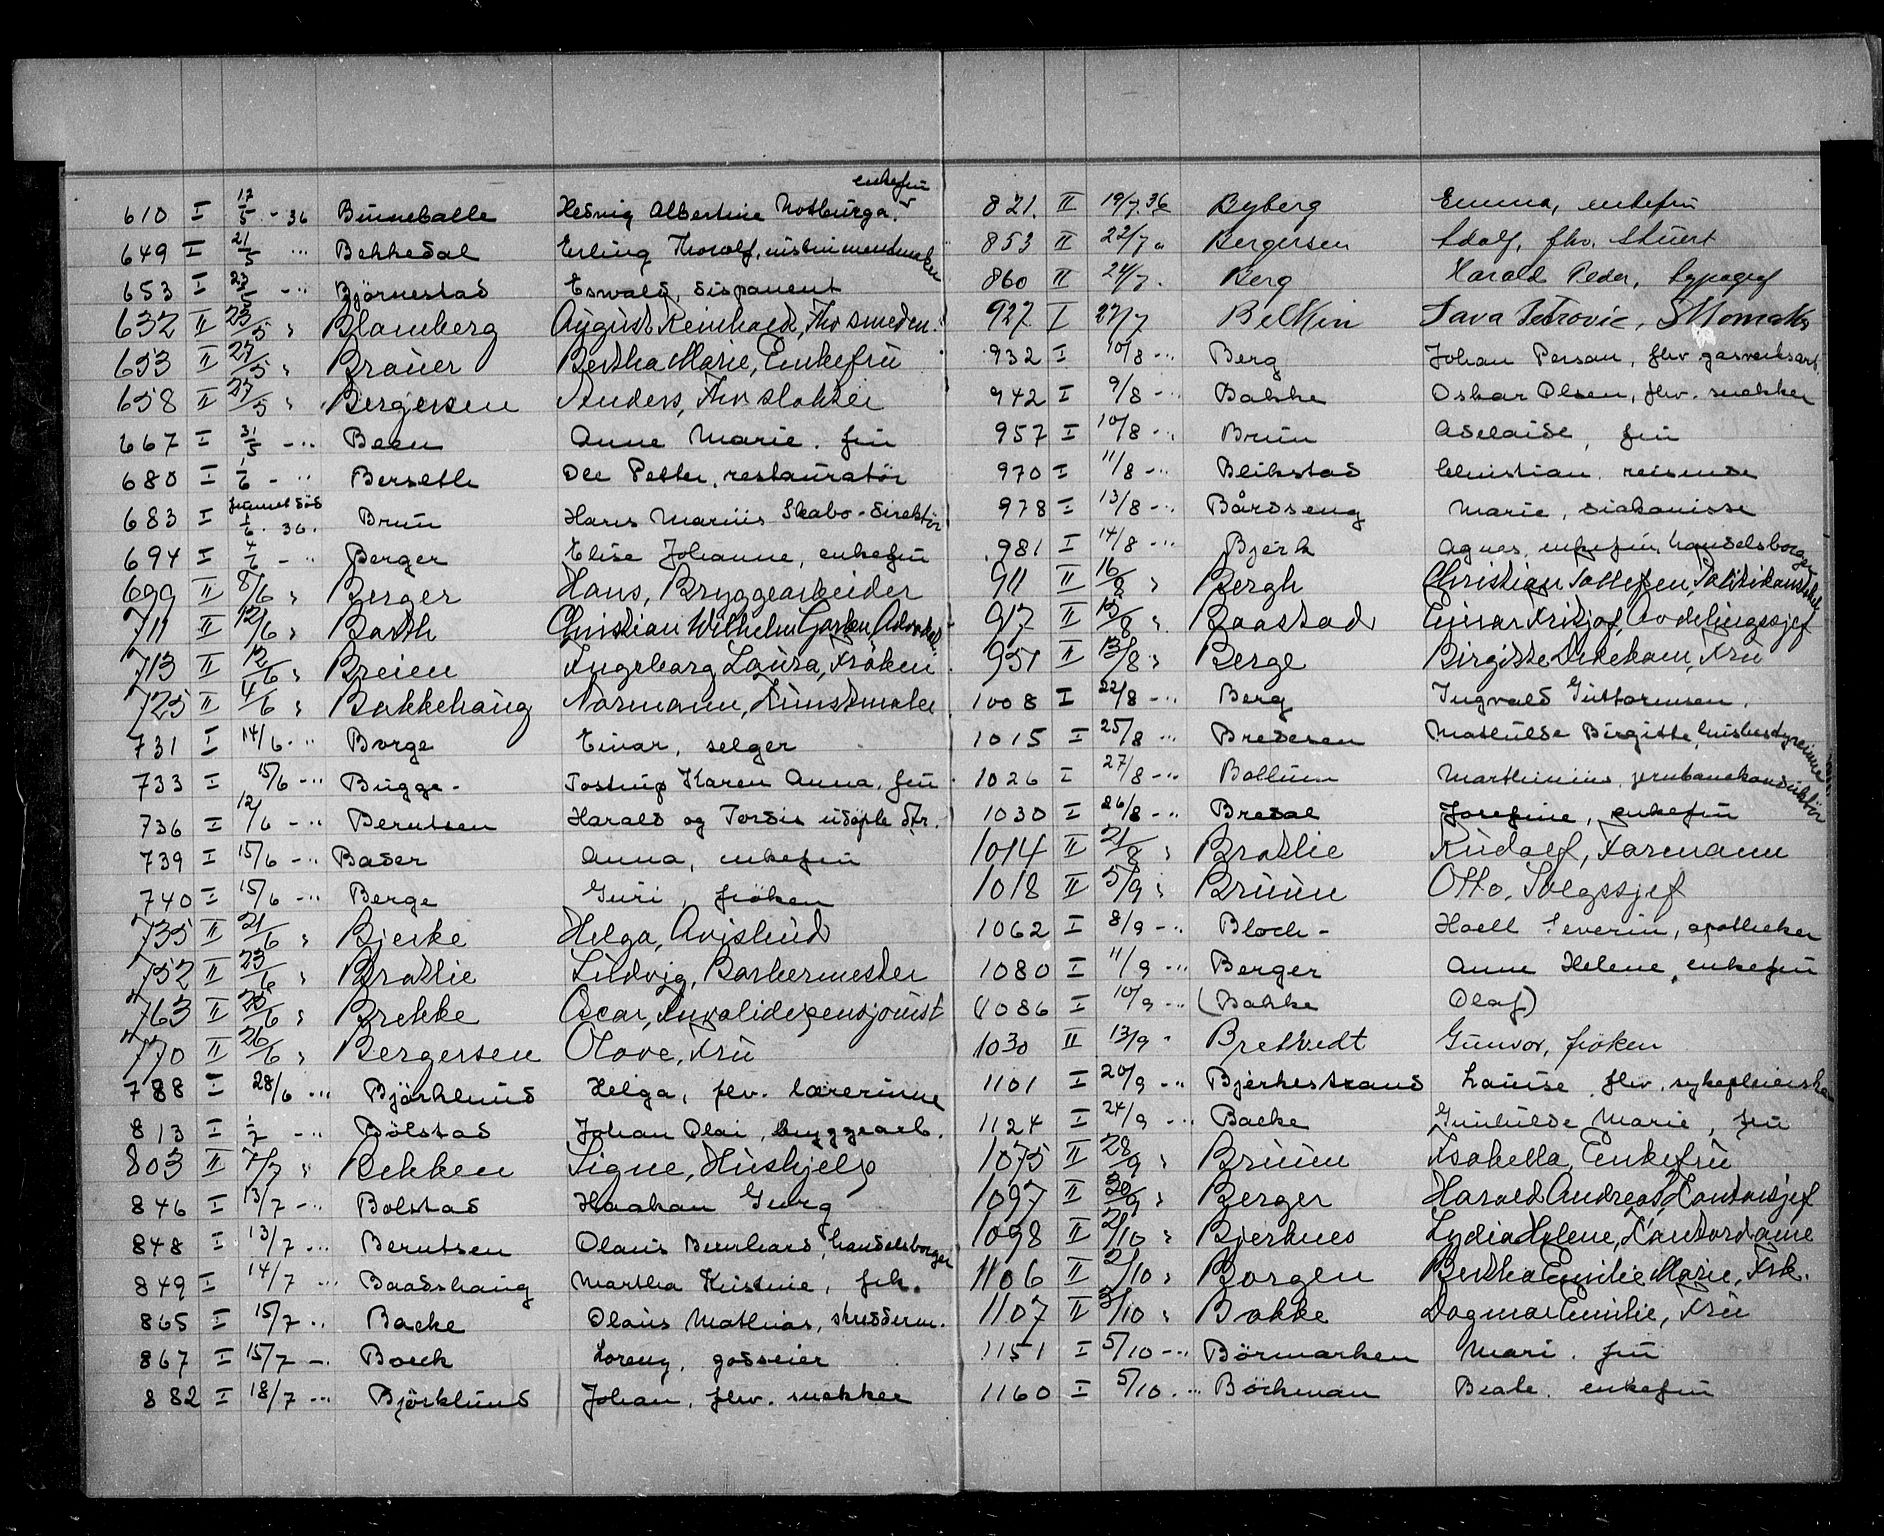 610 I 17/5 - 36 Binneballe Hedvig Albertine Notburga. enkefru
649 I 21/5 -" Bekkedal Erling Thoralf, instrumentmaker
653 I 23/5 -" Bjørnestad Esvald, disponent
632 II 23/5 " Blamberg August Reinhold, Fhv smedem.
653 II 27/5 " Braüer Bertha Marie, Enkefrü
658 II 27/5 " Bergersen Anders, Fhv slakter
667 I 31/5 -" Been Anne Marie. fru
680 I 1/6 - " Berseth Ole Petter, restauratør
683 I funnet død 1/6. 36. Brun Hans Marius Skabo - direktør
694 I 4/6 - " Berger Elise Johanne, enkefru
699 II 8/6 " Berger Hans, Bryggearbeider
711 II 12/6 " Barth Christian Wilhelm Garben, Advokat
713 II 12/6 " Breien Ingeborg Laüra, Frøken
725 II 4/6 " Bakkehaüg Normann, Künstmaler
731 I 14/6 - " Borge Einar, selger
733 I 15/6 -" Bugge - Tostrup Karen Anna, fru
736 I 12/6 - " Berntsen Harald og Tordis udøpte Str.
739 I 15/6 - " Bader Anna, enkefru
740 I 15/6 -" Berge Guri, frøken
735 II 21/6 " Bjerke Helga, Avisbüd
752 II 23/6 " Bratlie Lüdvig, Barbermester
763 II 25/6 " Brekke Oscar, Invalidepensjonist
770 II 26/6 " Bergersen Olave, Frü
788 I 28/6 -" Bjørklund Helga, fhv. lærerinne
813 I 1/7 -" Bølstad Johan Olai, bryggearb.
803 II 7/7 " Bekken Signe, Hüshjelp
846 I 13/7 -" Bolstad Haakon Georg
848 I 13/7 -" Berntsen Olaus Bernhard, handelsborger
849 I 14/7 -" Baadshaug Martha Kristine, frk.
865 I 15/7 -" Backe Olaus Mathias, skredderm.
867 I 15/7 - Boeck Lorenz, godseier
882 I 18/7 -" Bjørklund Johan, fhv. snekker
821. II 19/7.36 Byberg Emma, enkefru
853 II 22/7 " Bergersen Adolf, fhv. Stuert
860 II 24/7. Berg Harald Peder, typograf
927 I 27/7 Belkin Sava Petrovic, Skomaker
932 I 10/8 -" Berg Johan Person, fhv gasverksarb.
942 I 9/8 -" Bakke Oskar Olsen, fhv. snekker
957 I 10/8 -" Brun Adelaide, fru
970 I 11/8 -" Bleikstad Christian. reisende
978 I 13/8 -" Bårdseng Marie, diakonisse
981 I 14/8 -" Bjerk Agnes, enkefru, handelsborger
911 II 16/8 " Bergh Christian Tollefsen, Politikonstabel
917 II 15/8 " Baastad Einar Fritjof, Avdelingssjef
951 II 13/8 " Berge Birgitte Drekam, Frü
1008 I 22/8 -" Berg Ingvald Guttormsen.
1015 I 25/8 -" Bredesen Mathilde Birgitte, husbestyrerinne
1026 I 27/8 -" Bollum Marthinius, jernbanekonduktør
1030 I 26/8 -" Bredal Josefine, enkefru
1014 II 21/8 " Bratlie Rüdolf, Formann
1018 II 5/9 " Brüün Otto, Salgssjef
1062 I 8/9 -" Bloch - Hoell Severin, apotheker
1080 I 11/9 -" Berger Anne Helene, enkefru
(1086 I 10/9 -" (Bakke Olaf)
1030 II 13/9 " Bretvedt Gunvor, frøken
1101 I 20/9 -" Bjerkestrand Louise, fhv. sykepleierske
1124 I 24/9 -" Backe Gunhilde Marie, fru
1075 II 28/9 " Brüün Isabella, Enkefrü
1097 II 30/9 " Berger Harald Andreas, Kontorsjef
1098 II 2/10 " Bjerknes Lydia Helene, Kontordame
1106 II 2/10 " Borgen Bertha Emilie Marie, Frk.
1107 II 3/10 " Bakke Dagmar Emilie, Frü
1151 I 5/10 -" Börmarken Mari. fru
1160 I 5/10. -" Böckman Beate. enkefru